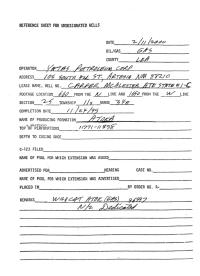 REFERENCE SHEET FOR UNDESIGNATED WELLS
DATE 2/11/2000
OIL/GAS GAS
COUNTY LEA
OPERATOR YATES PETROLEUM CORP
ADDRESS 105 SOUTH 4th ST, ARTESIA NM 88210
LEASE NAME, WELL NO. MCALESTER STATE #1
FOOTAGE LOCATION 660 FROM THE N LINE AND FROM THE W LINE
SECTION 25 TOWNSHIP 11s RANGE
COMPLETION DATE 11/24/99
NAME OF PRODUCING FORMATION ATOKA
TOP OF PERFORATIONS 11771-11898
DEPTH TO CASING SHOE
C-123 FILED
NAME OF POOL FOR WHICH EXTENSION WAS ASKED
ADVERTISED FOR HEARING CASE NO.
NAME OF POOL FOR WHICH EXTENSION WAS ADVERTISED
PLACED IN BY ORDER NO. R-
REMARKS WILDCAT ATOKA (GAS)
Dedicated